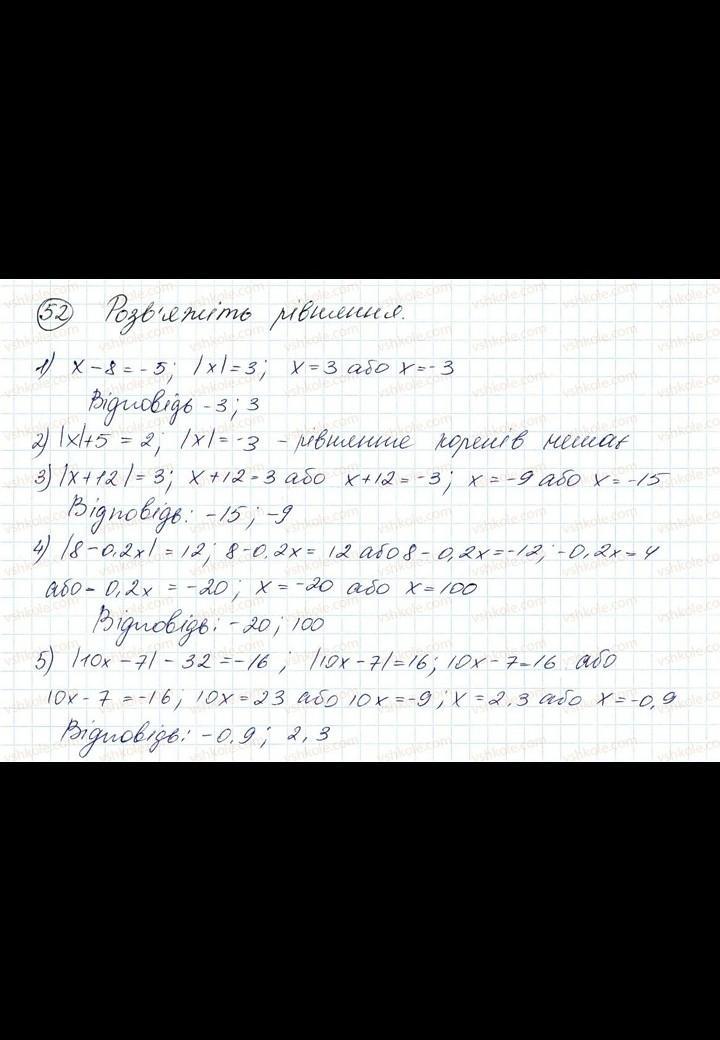 52 Розв'яжіть рівняння.
1) x - 8 = -5; |x| = 3; x = 3 або x = -3
Відповідь -3; 3
2) |x| + 5 = 2; |x| = -3 - рівняння коренів немає
3) |x + 12| = 3; x + 12 = 3 або x + 12 = -3; x = -9 або x = -15
Відповідь: -15; -9
4) |8 - 0,2x| = 12; 8 - 0,2x = 12 або 8 - 0,2x = -12; -0,2x = 4
або - 0,2x = -20; x = -20 або x = 100
Відповідь: -20; 100
5) |10x - 7| - 32 = -16; |10x - 7| = 16; 10x - 7 = 16 або
10x - 7 = -16; 10x = 23 або 10x = -9; x = 2,3 або x = -0,9
Відповідь: -0,9; 2,3